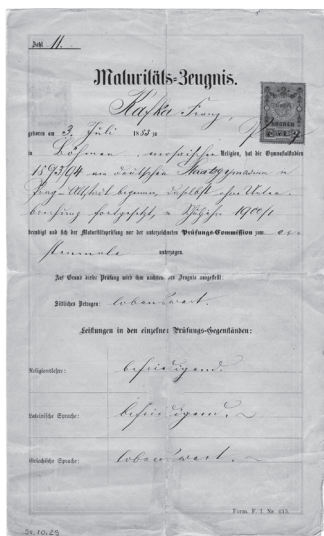 Zahl 11.
Maturitäts-Zeugnis.
Kafka Franz,
geboren am 3. Juli 1883 zu Prag
in Böhmen, mosaischer Religion, hat die Gymnasialstudien
1893/94 am deutschen Staatsgymnasium in
Prag-Altstadt begonnen, daselbst ohne Unter-
brechung fortgesetzt, im Schuljahre 1900/1
beendigt und sich der Maturitätsprüfung vor der unterzeichneten Prüfungs-Commission zum ers-
tenmale unterzogen.
Auf Grund dieser Prüfung wird ihm nachstehendes Zeugnis ausgestellt:
Sittliches Betragen: lobenswert.
Leistungen in den einzelnen Prüfungs-Gegenständen:
Religionslehre: befriedigend.
Lateinische Sprache: befriedigend.
Griechische Sprache: lobenswert.
Form. F. I. Nr. 615.